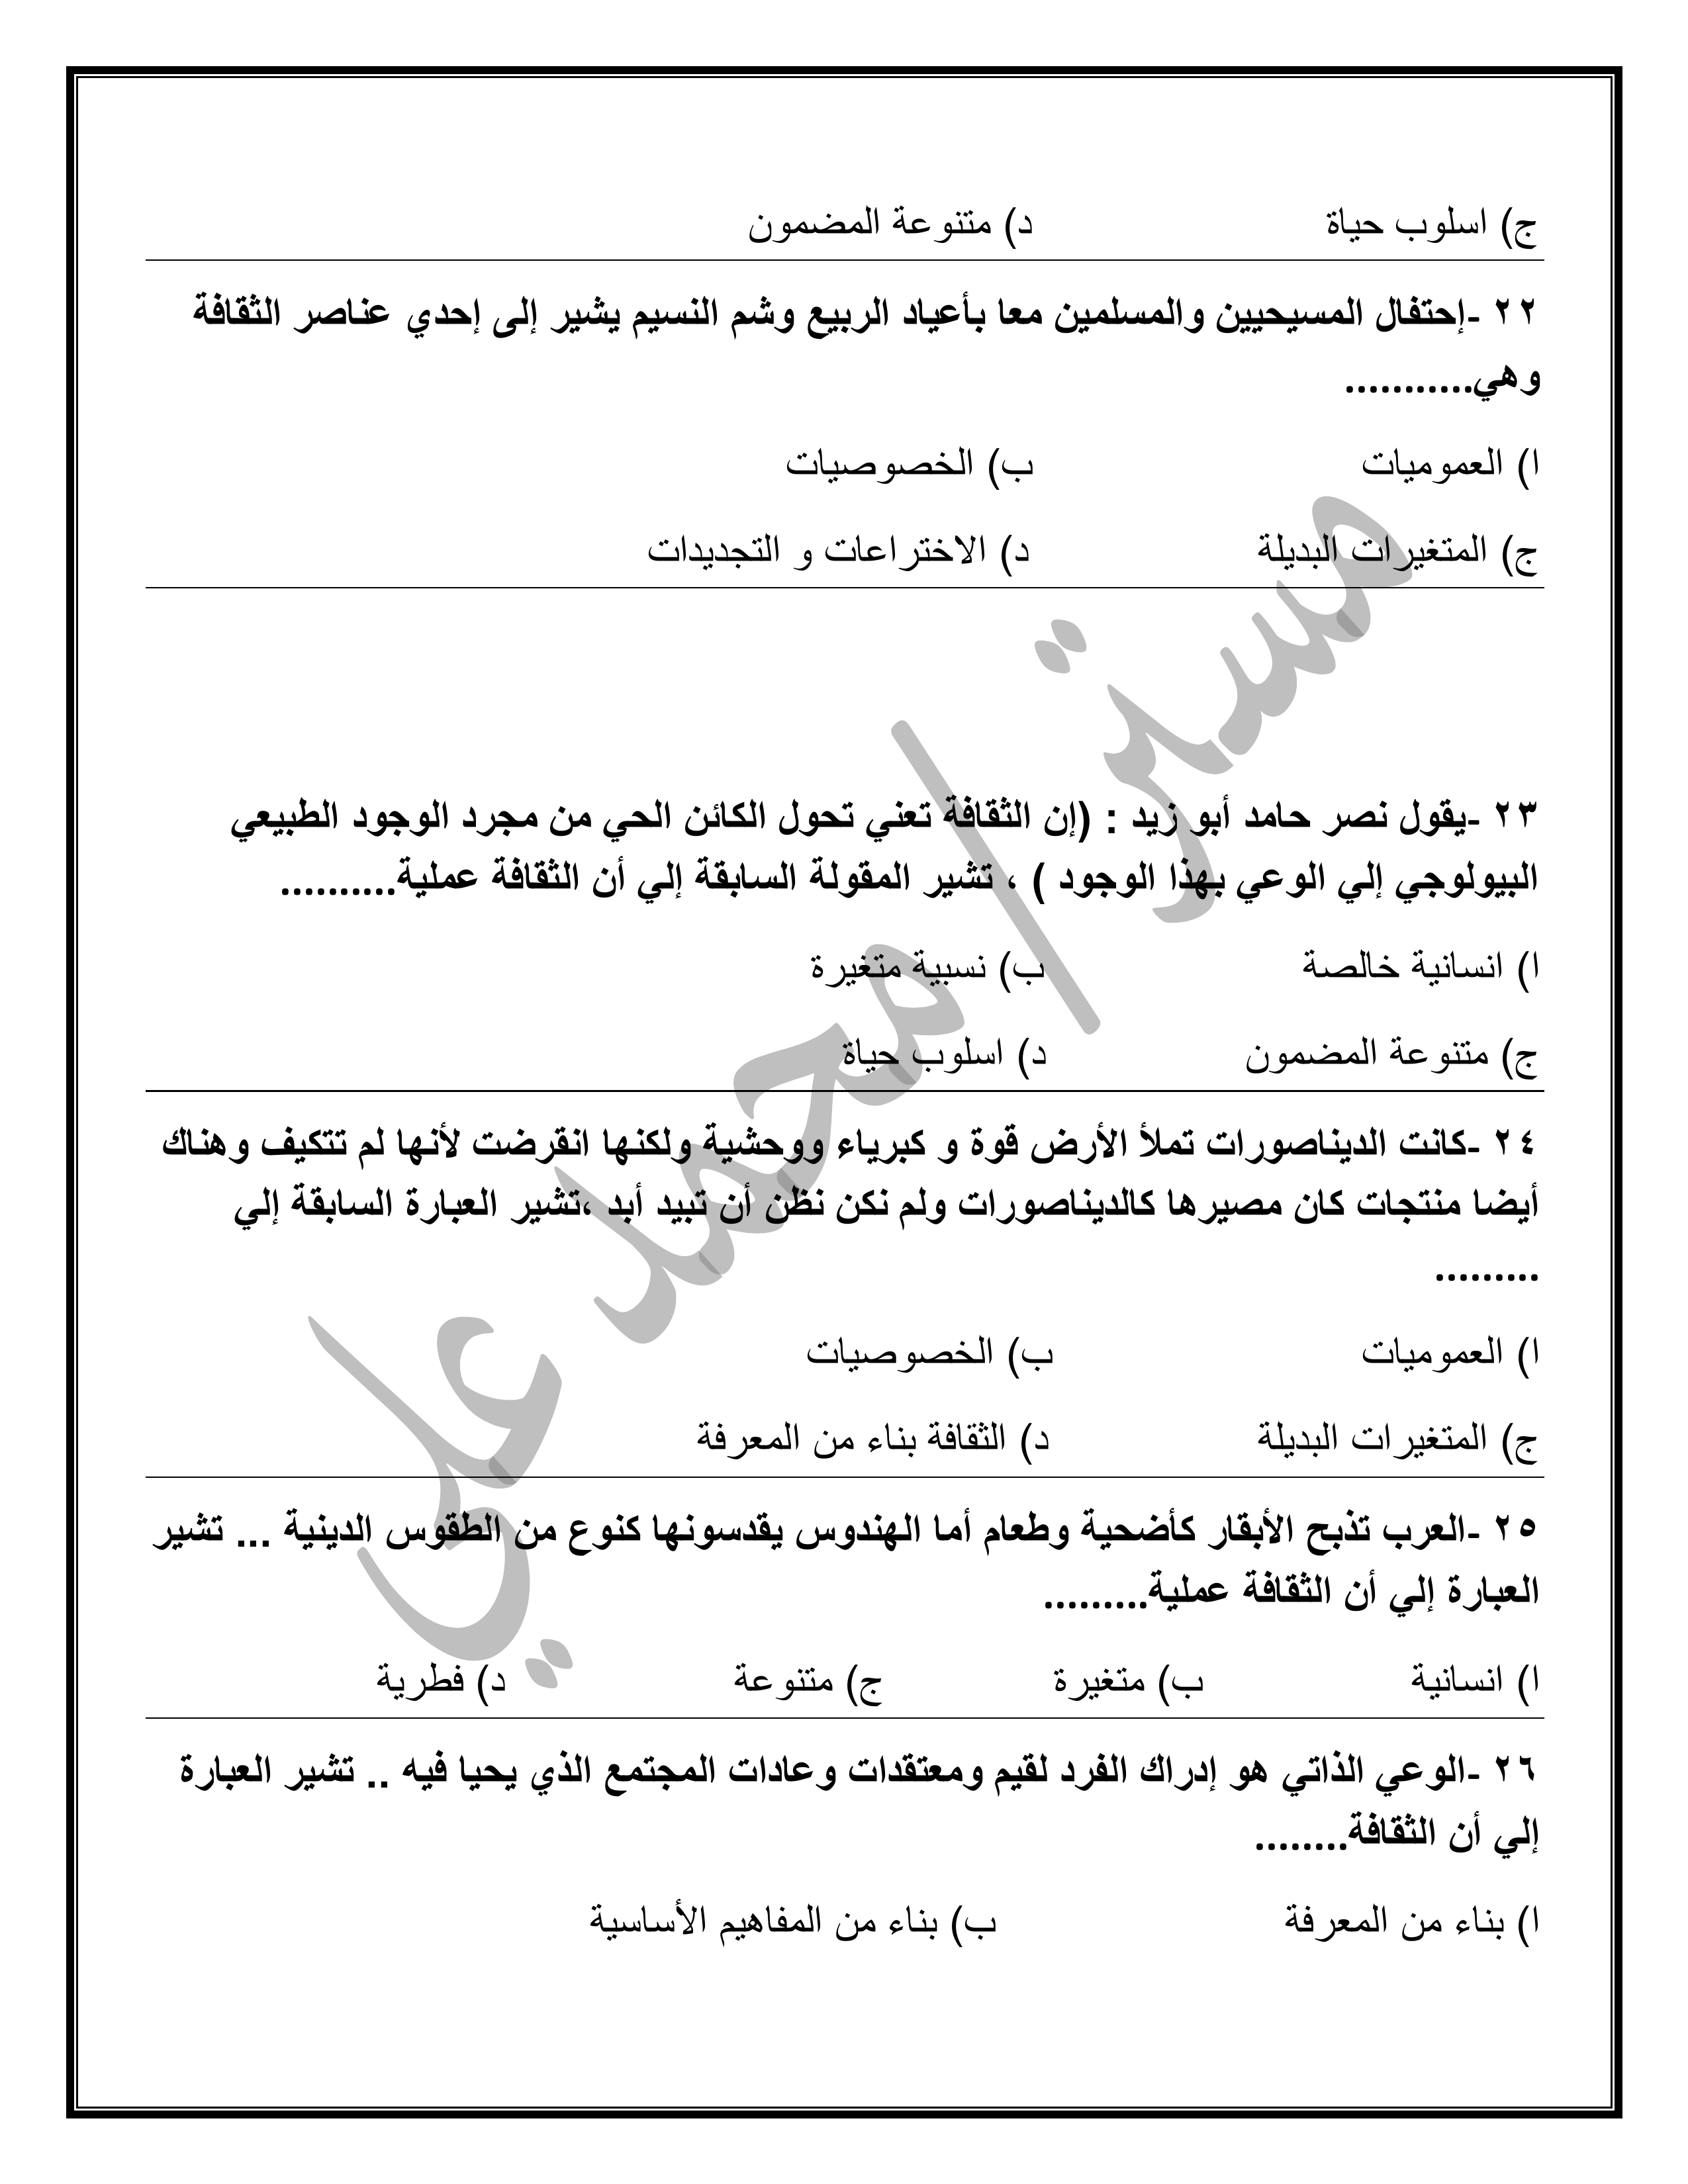 ج) اسلوب حياة د) متنوعة المضمون
٢٢ -إحتفال المسيحيين والمسلمين معا بأعياد الربيع وشم النسيم يشير إلى إحدي عناصر الثقافة
وهي...........
ا) العموميات ب) الخصوصيات
ج) المتغيرات البديلة د) الاختراعات و التجديدات
٢٣ -يقول نصر حامد أبو زيد : (إن الثقافة تعني تحول الكائن الحي من مجرد الوجود الطبيعي
البيولوجي إلي الوعي بهذا الوجود ) ، تشير المقولة السابقة إلي أن الثقافة عملية..........
ا) انسانية خالصة ب) نسبية متغيرة
ج) متنوعة المضمون د) اسلوب حياة
٢٤ -كانت الديناصورات تملأ الأرض قوة و كبرياء ووحشية ولكنها انقرضت لأنها لم تتكيف وهناك
أيضا منتجات كان مصيرها كالديناصورات ولم نكن نظن أن تبيد أبد ،تشير العبارة السابقة إلي
.........
ا) العموميات ب) الخصوصيات
ج) المتغيرات البديلة د) الثقافة بناء من المعرفة
٢٥ -العرب تذبح الأبقار كأضحية وطعام أما الهندوس يقدسونها كنوع من الطقوس الدينية ... تشير
العبارة إلي أن الثقافة عملية.........
ا) انسانية ب) متغيرة ج) متنوعة د) فطرية
٢٦ -الوعي الذاتي هو إدراك الفرد لقيم ومعتقدات وعادات المجتمع الذي يحيا فيه .. تشير العبارة
إلي أن الثقافة........
ا) بناء من المعرفة ب) بناء من المفاهيم الأساسية
مستر / محمد علي